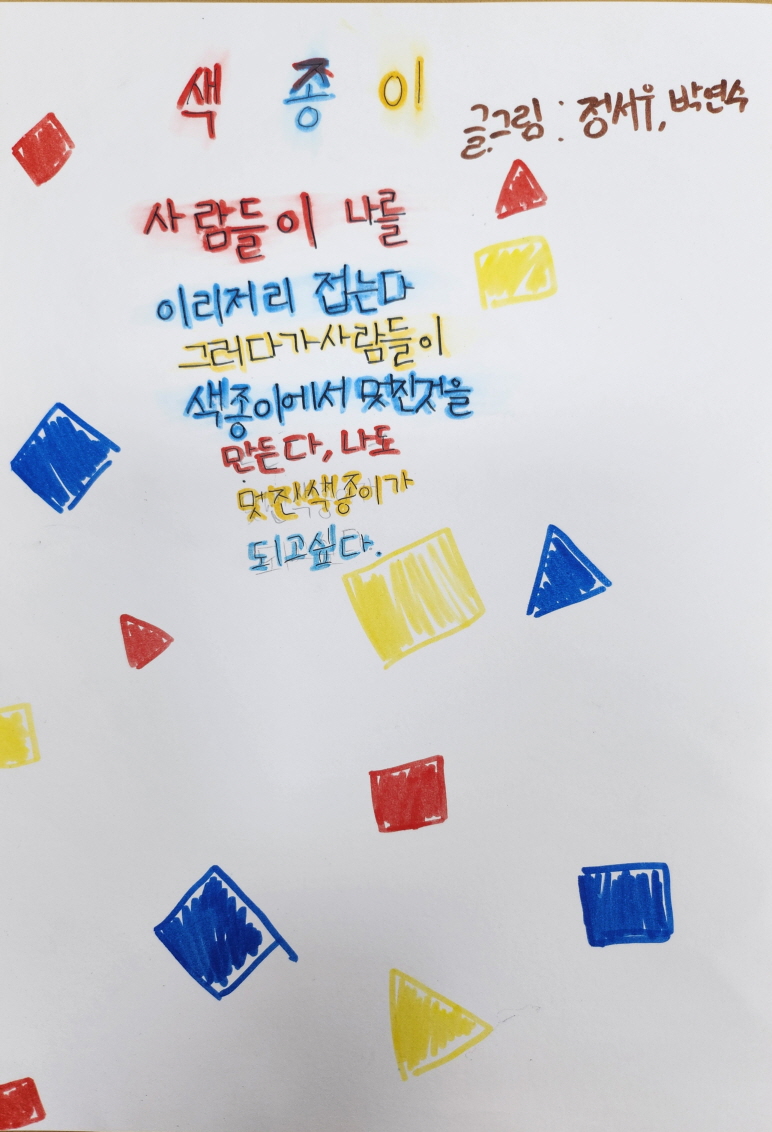 색종이
글.그림 : 정서우, 박연수
사람들이 나를
이리저리 접는다
그러다가사람들이
색종이에서 멋진것을
만든다, 나도
멋진색종이가
되고싶다.